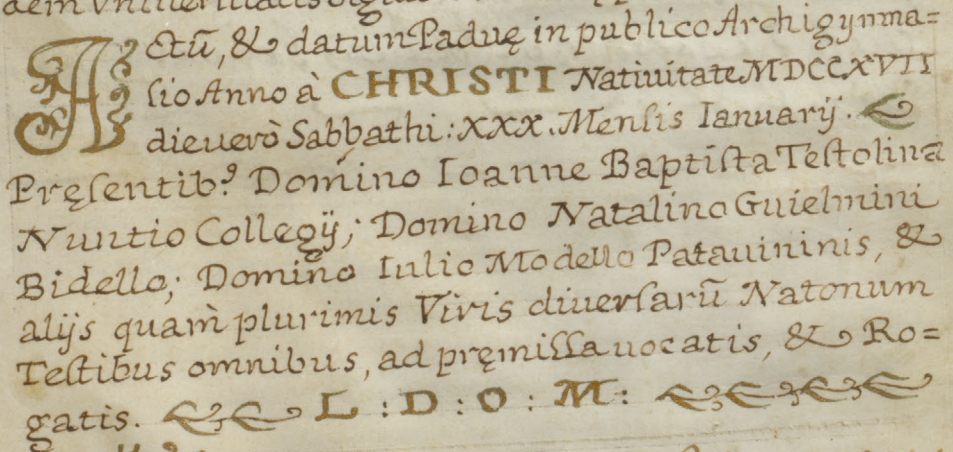 Actū, & datum Paduę in publico Archigymna=
sio Anno à CHRISTI Natiuitate MDCCXVII
die uerò Sabbathi: XXX. Mensis Ianuarÿ.
Pręsentib⁹ Domino Ioanne Baptista Testolina
Nuntio Collegÿ; Domino Natalino Guielmini
Bidello; Domino Iulio Modello Patauininis, &
alÿs quam̀ plurimis Viris diuersarū Natonum
Testibus omnibus, ad pręmissa uocatis, & Ro=
gatis. L : D : O : M :